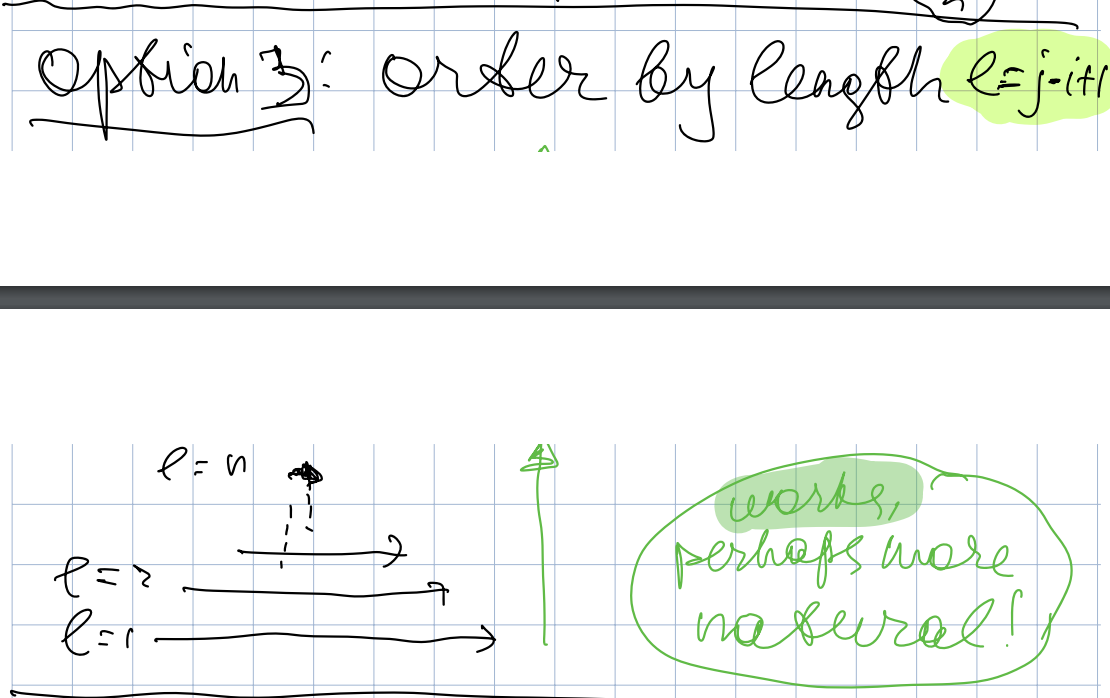 option 3: order by length l=j-i+1
l=n
works,
perhaps more
l=2
natural!
l=1